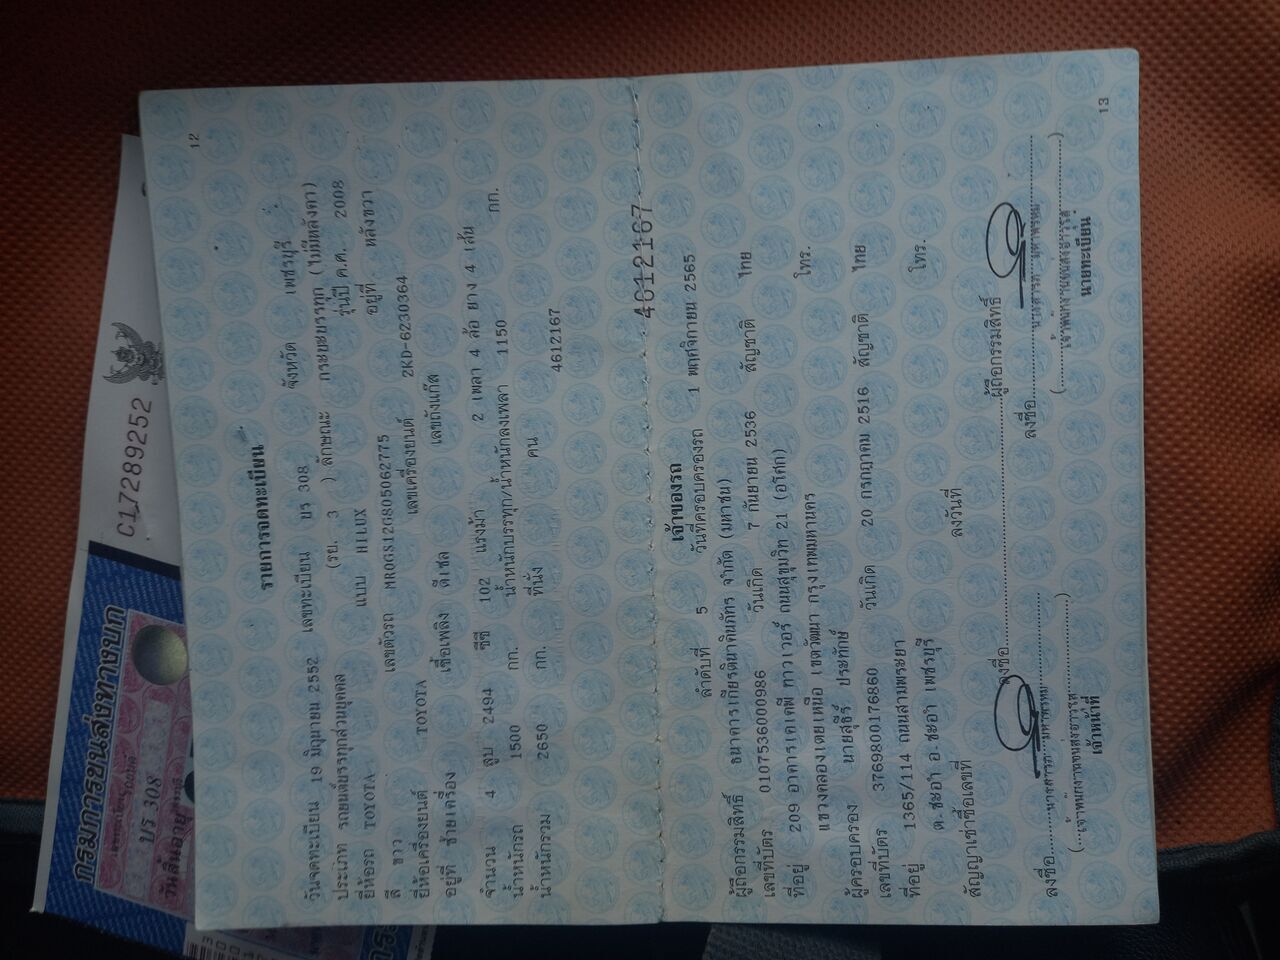 12
รายการจดทะเบียน
วันจดทะเบียน 19 มิถุนายน 2552 เลขทะเบียน บร 308 จังหวัด เพชรบุรี
ประเภท รถยนต์บรรทุกส่วนบุคคล (รย. 3 ) ลักษณะ กระบะบรรทุก (ไม่มีหลังคา)
ยี่ห้อรถ TOYOTA แบบ HILUX รุ่นปี ค.ศ. 2008
สี ขาว เลขตัวรถ MR0GS12G805062775 อยู่ที่ หลังขวา
ยี่ห้อเครื่องยนต์ TOYOTA เลขเครื่องยนต์ 2KD-6230364
อยู่ที่ ซ้ายเครื่อง เชื้อเพลิง ดีเซล เลขถังแก๊ส
จำนวน 4 สูบ 2494 ซีซี 102 แรงม้า 2 เพลา 4 ล้อ ยาง 4 เส้น
น้ำหนักรถ 1500 กก. น้ำหนักบรรทุก/น้ำหนักลงเพลา 1150 กก.
น้ำหนักรวม 2650 กก. ที่นั่ง คน
4612167
4612167
เจ้าของรถ
ลำดับที่ 5 วันที่ครอบครองรถ 1 พฤศจิกายน 2565
ผู้ถือกรรมสิทธิ์ ธนาคารเกียรตินาคินภัทร จำกัด (มหาชน)
เลขที่บัตร 0107536000986 วันเกิด 7 กันยายน 2536 สัญชาติ ไทย
ที่อยู่ 209 อาคารเคเคพี ทาวเวอร์ ถนนสุขุมวิท 21 (อโศก)
แขวงคลองเตยเหนือ เขตวัฒนา กรุงเทพมหานคร โทร.
ผู้ครอบครอง นายสุธีร์ ประทักษ์
เลขที่บัตร 3769800176860 วันเกิด 20 กรกฎาคม 2516 สัญชาติ ไทย
ที่อยู่ 1365/114 ถนนสามพระยา
ต.ชะอำ อ.ชะอำ เพชรบุรี โทร.
สัญญาเช่าซื้อเลขที่ ลงวันที่
ลงชื่อ ผู้ถือกรรมสิทธิ์
ลงชื่อ ลงชื่อ
เจ้าหน้าที่ นายทะเบียน
13
C17289252
กรมการขนส่งทางบก
บร 308
วันสิ้นอายุ